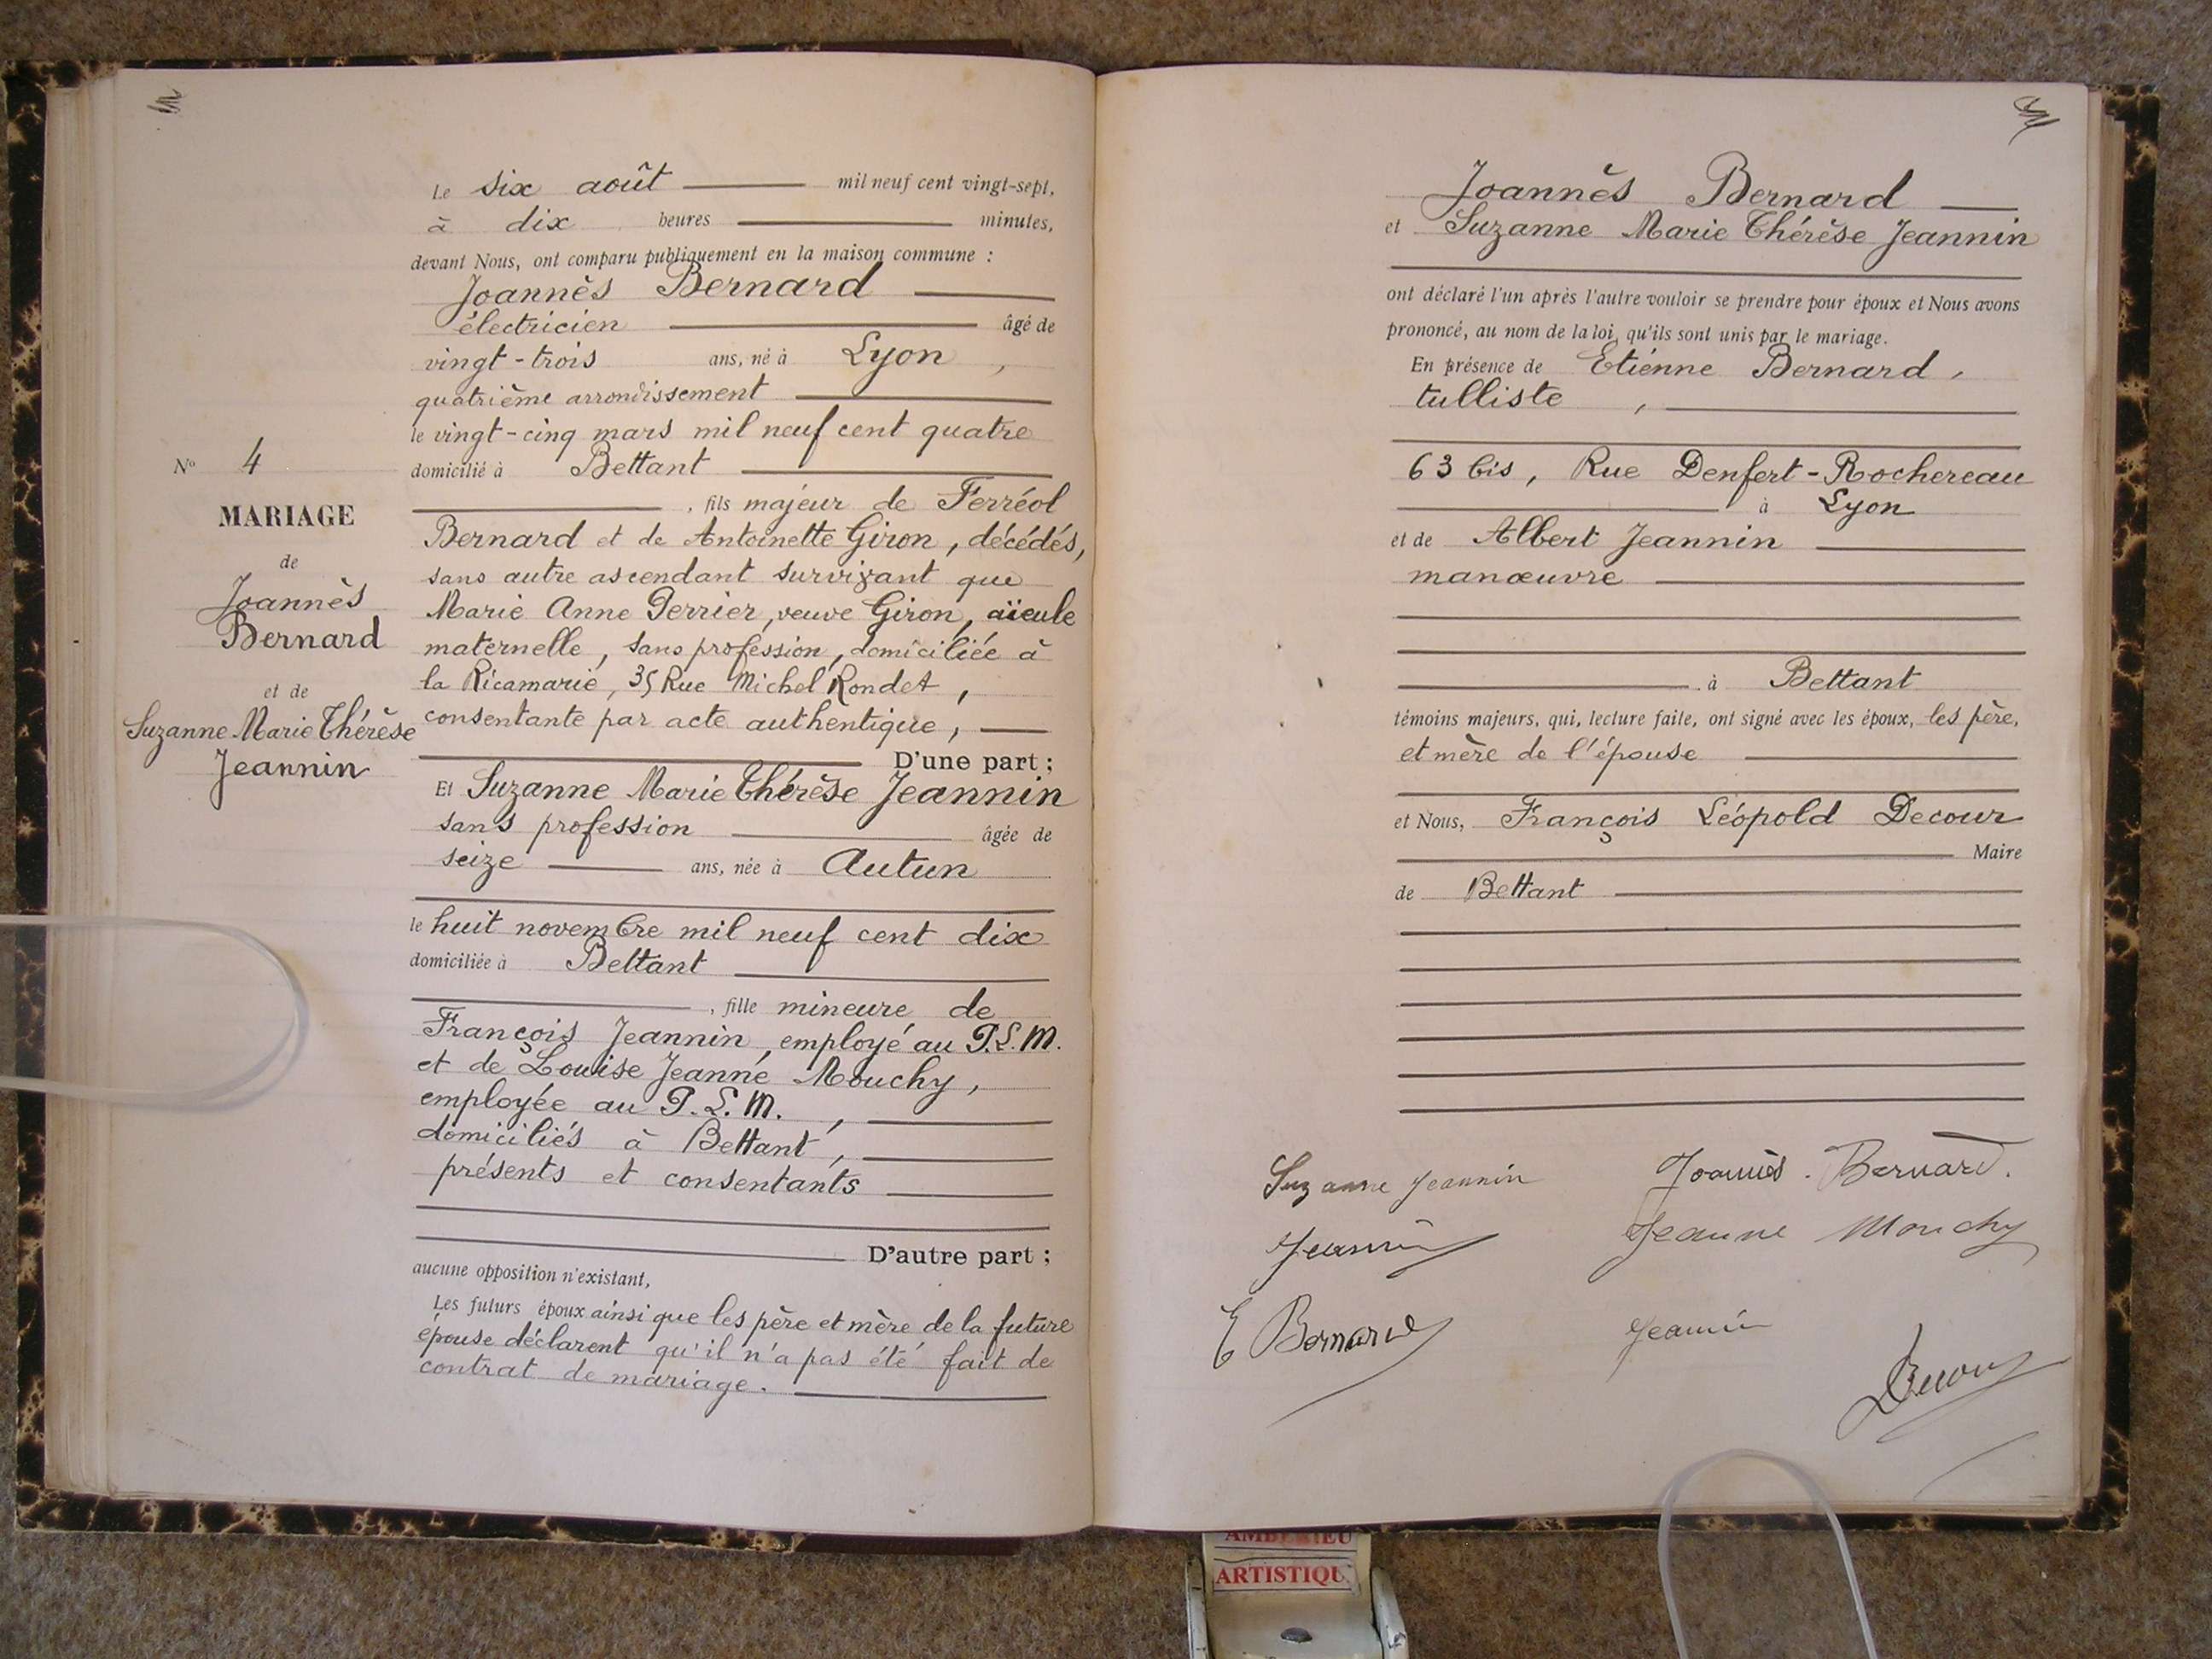 Le six août mil neuf cent vingt-sept,
à dix heures minutes,
devant Nous, ont comparu publiquement en la maison commune :
Joannès Bernard
électricien âgé de
vingt-trois ans, né à Lyon,
quatrième arrondissement
le vingt-cinq mars mil neuf cent quatre
domicilié à Bettant
, fils majeur de Ferréol
Bernard et de Antoinette Giron, décédés,
sans autre ascendant survivant que
Marie Anne Perrier, veuve Giron, aïeule
maternelle, sans profession, domiciliée à
la Ricamarie, 35 Rue Michel Rondet,
consentante par acte authentique,
D'une part ;
Et Suzanne Marie Thérèse Jeannin
sans profession âgée de
seize ans, née à Autun
le huit novembre mil neuf cent dix
domiciliée à Bettant
, fille mineure de
François Jeannin, employé au P.L.M.
et de Louise Jeanne Mouchy,
employée au P.L.M.,
domiciliés à Bettant,
présents et consentants
D'autre part ;
aucune opposition n'existant,
Les futurs époux ainsi que les père et mère de la future
épouse déclarent qu'il n'a pas été fait de
contrat de mariage.
N° 4
MARIAGE
de
Joannès
Bernard
et de
Suzanne Marie Thérèse
Jeannin
Joannès Bernard
et Suzanne Marie Thérèse Jeannin
ont déclaré l'un après l'autre vouloir se prendre pour époux et Nous avons
prononcé, au nom de la loi, qu'ils sont unis par le mariage.
En présence de Etienne Bernard,
tulliste,
63 bis, Rue Denfert-Rochereau
à Lyon
et de Albert Jeannin
manœuvre
à Bettant
témoins majeurs, qui, lecture faite, ont signé avec les époux, les père,
et mère de l'épouse
et Nous, François Léopold Decour
Maire
de Bettant
Suzanne Jeannin Joannès. Bernard.
Jeannin Jeanne Mouchy
E Bernard Jeannin
Decour
AMBERIEU
ARTISTIQU